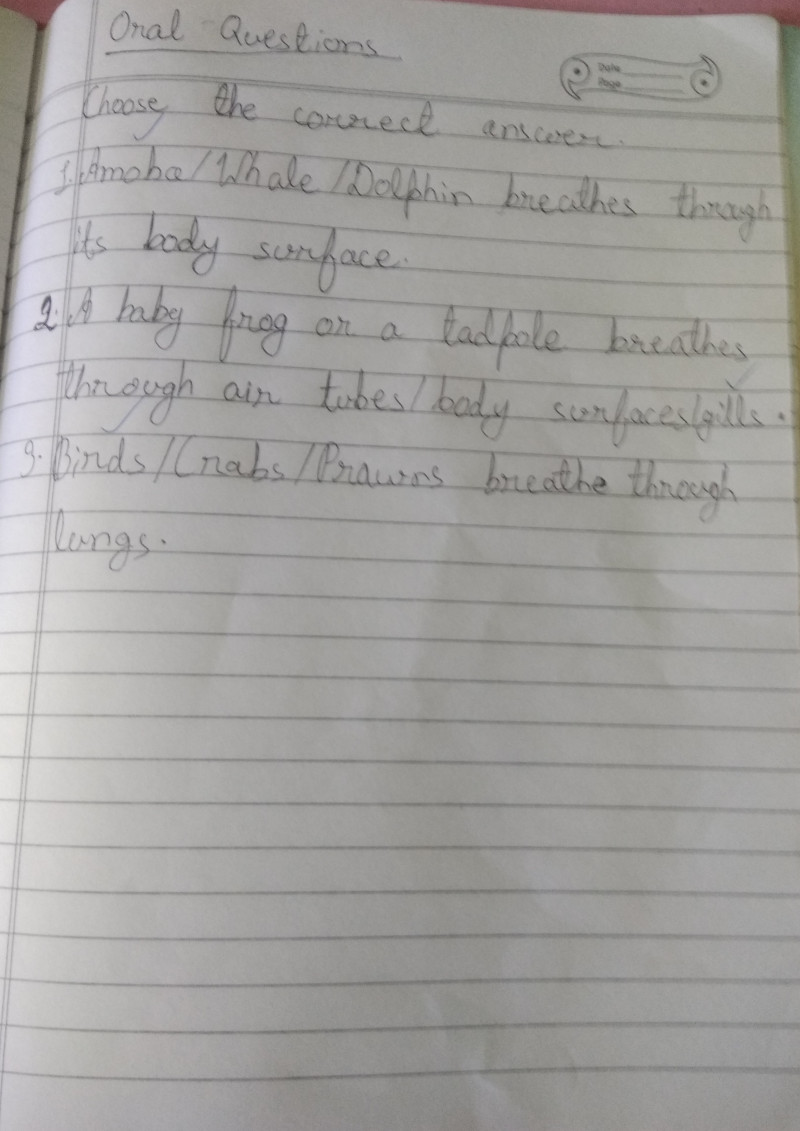 Oral Questions
Date
Page
Choose the correct answer.
1. Amoba/Whale/Dolphin breathes through
its body surface.
2. A baby frog or a tadpole breathes
through air tubes/body surfaces/gills.
3. Birds/Crabs/Prawns breathe through
lungs.